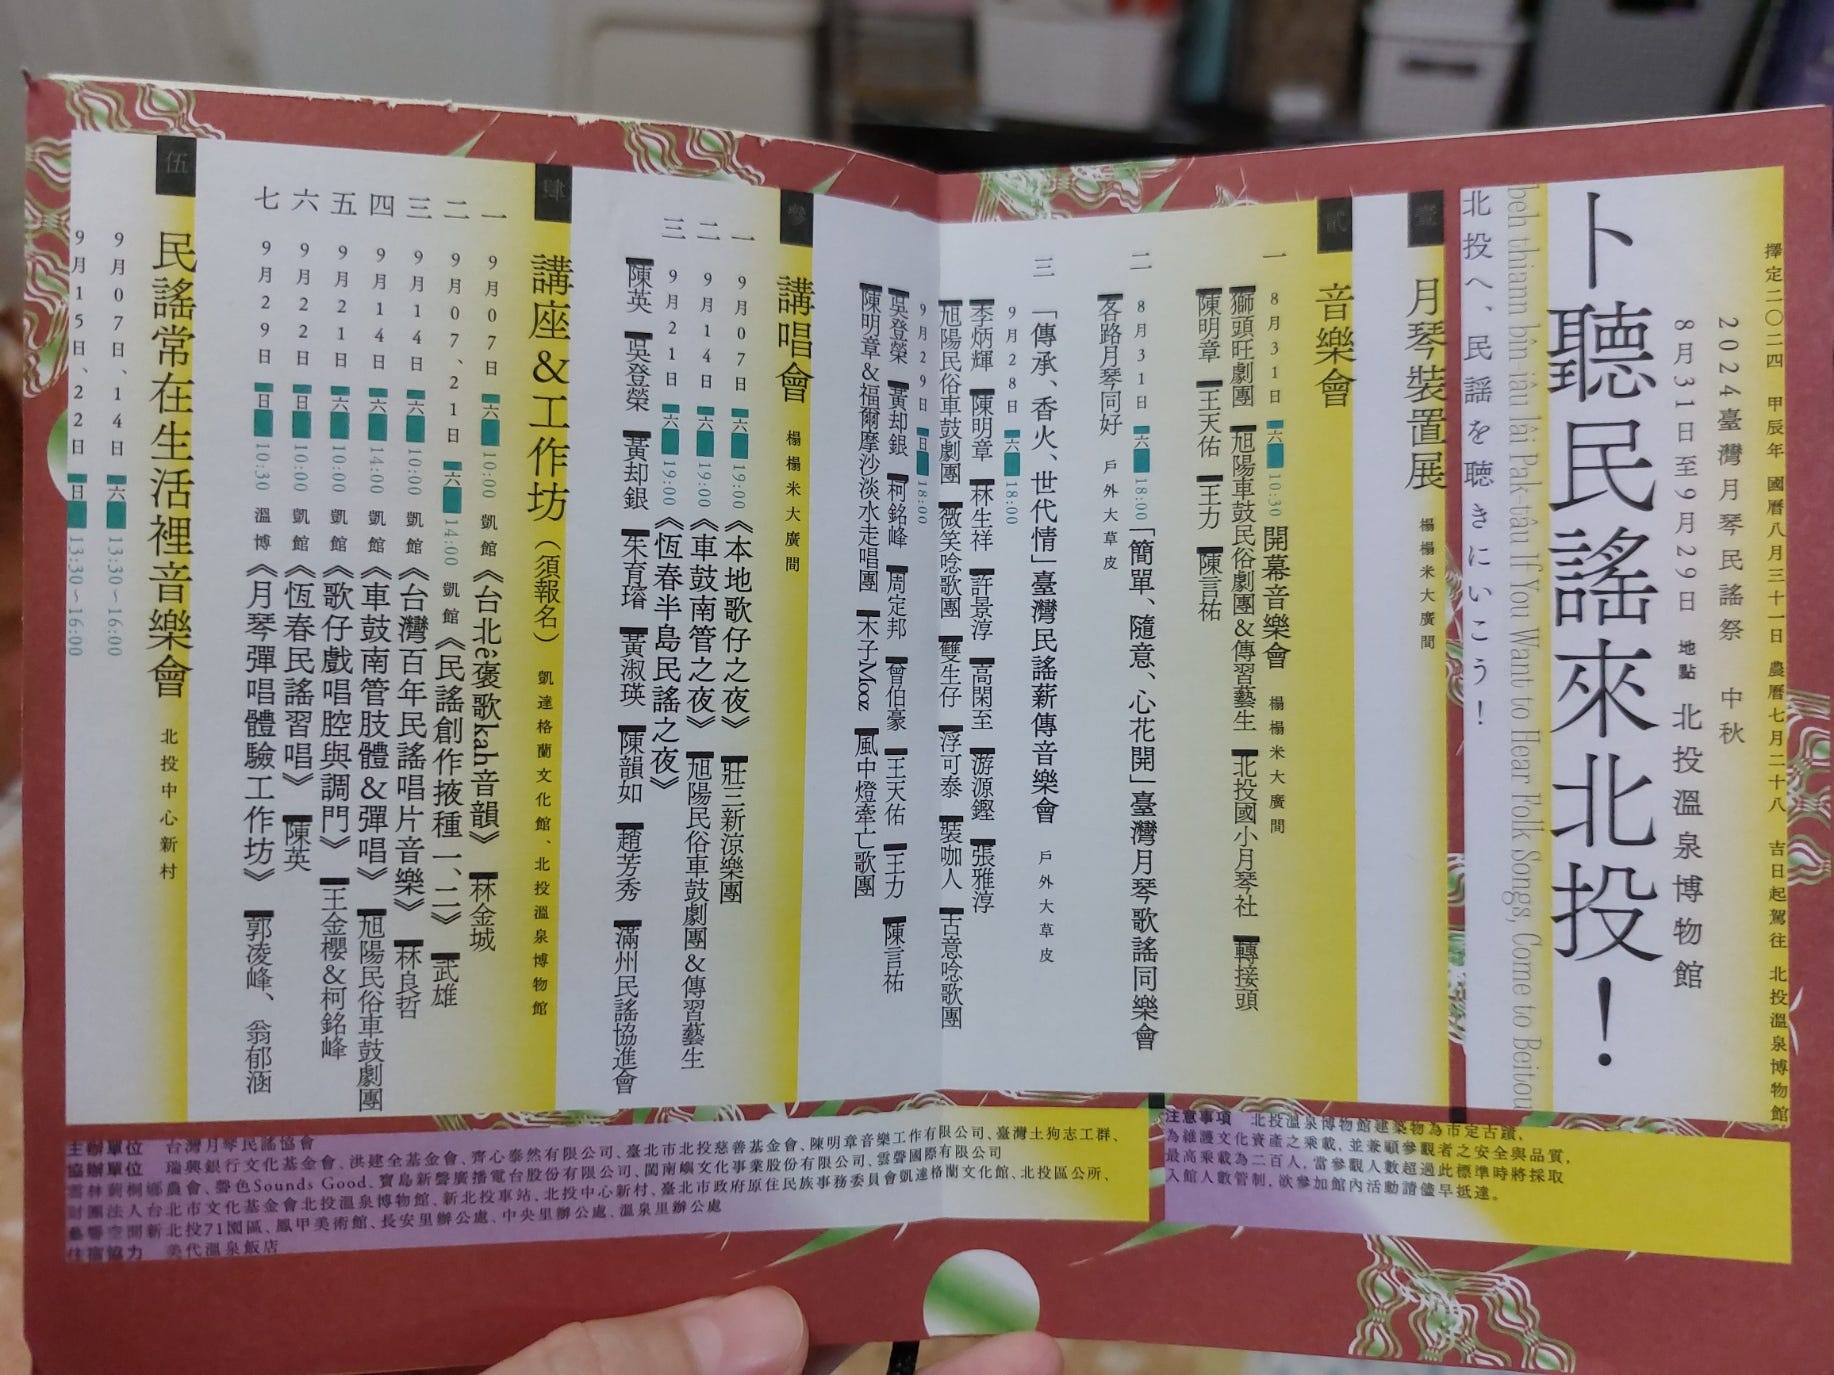 擇定二〇二四 甲辰年 國曆八月三十一日 農曆七月二十八 吉日起駕往 北投溫泉博物館
2024臺灣月琴民謠祭 中秋
8月31日至9月29日 地點 北投溫泉博物館
卜聽民謠來北投！
beh thiann bîn-iâu lâi Pak-tâu If You Want to Hear Folk Songs, Come to Beitou
北投へ、民謡を聴きにいこう！
壹 月琴裝置展 榻榻米大廣間
貳 音樂會
一 8月31日 六 10:30 開幕音樂會 榻榻米大廣間
獅頭旺劇團 旭陽車鼓民俗劇團&傳習藝生 北投國小月琴社 轉接頭
陳明章 王天佑 王力 陳言祐
二 8月31日 六 18:00 「簡單、隨意、心花開」臺灣月琴歌謠同樂會
各路月琴同好 戶外大草皮
三 「傳承、香火、世代情」臺灣民謠薪傳音樂會 戶外大草皮
9月28日 六 18:00
李炳輝 陳明章 林生祥 許景淳 高閑至 游源鏗 張雅淳
旭陽民俗車鼓劇團 微笑唸歌團 雙生仔 浮可泰 裝咖人 古意唸歌團
9月29日 日 18:00
吳登榮 黃却銀 柯銘峰 周定邦 曾伯豪 王天佑 王力 陳言祐
陳明章&福爾摩沙淡水走唱團 木子Mooz 風中燈牽亡歌團
參 講唱會 榻榻米大廣間
一 9月07日 六 19:00 《本地歌仔之夜》 莊三新涼樂團
二 9月14日 六 19:00 《車鼓南管之夜》 旭陽民俗車鼓劇團&傳習藝生
三 9月21日 六 19:00 《恆春半島民謠之夜》
陳英 吳登榮 黃却銀 朱育璿 黃淑瑛 陳韻如 趙芳秀 滿州民謠協進會
肆 講座&工作坊（須報名） 凱達格蘭文化館、北投溫泉博物館
一 9月07日 六 10:00 凱館 《台北ê褒歌kah音韻》 林金城
二 9月07、21日 六 14:00 凱館 《民謠創作掖種一、二》 武雄
三 9月14日 六 10:00 凱館 《台灣百年民謠唱片音樂》 林良哲
四 9月14日 六 14:00 凱館 《車鼓南管肢體&彈唱》 旭陽民俗車鼓劇團
五 9月21日 六 10:00 凱館 《歌仔戲唱腔與調門》 王金櫻&柯銘峰
六 9月22日 日 10:00 凱館 《恆春民謠習唱》 陳英
七 9月29日 日 10:30 溫博 《月琴彈唱體驗工作坊》 郭凌峰、翁郁涵
伍 民謠常在生活裡音樂會 北投中心新村
9月07日、14日 六 13:30~16:00
9月15日、22日 日 13:30~16:00
注意事項 北投溫泉博物館建築物為市定古蹟，
為維護文化資產之乘載，並兼顧參觀者之安全與品質，
最高乘載為二百人，當參觀人數超過此標準時將採取
入館人數管制，欲參加館內活動請儘早抵達。
主辦單位 台灣月琴民謠協會
協辦單位 瑞興銀行文化基金會、洪建全基金會、齊心泰然有限公司、臺北市北投慈善基金會、陳明章音樂工作有限公司、臺灣土狗志工群、
雲林莿桐鄉農會、聲色Sounds Good、寶島新聲廣播電台股份有限公司、閩南嶼文化事業股份有限公司、雲聲國際有限公司
財團法人台北市文化基金會北投溫泉博物館、新北投車站、北投中心新村、臺北市政府原住民族事務委員會凱達格蘭文化館、北投區公所、
參響空間新北投71園區、鳳甲美術館、長安里辦公處、中央里辦公處、溫泉里辦公處
住宿協力 美代溫泉飯店